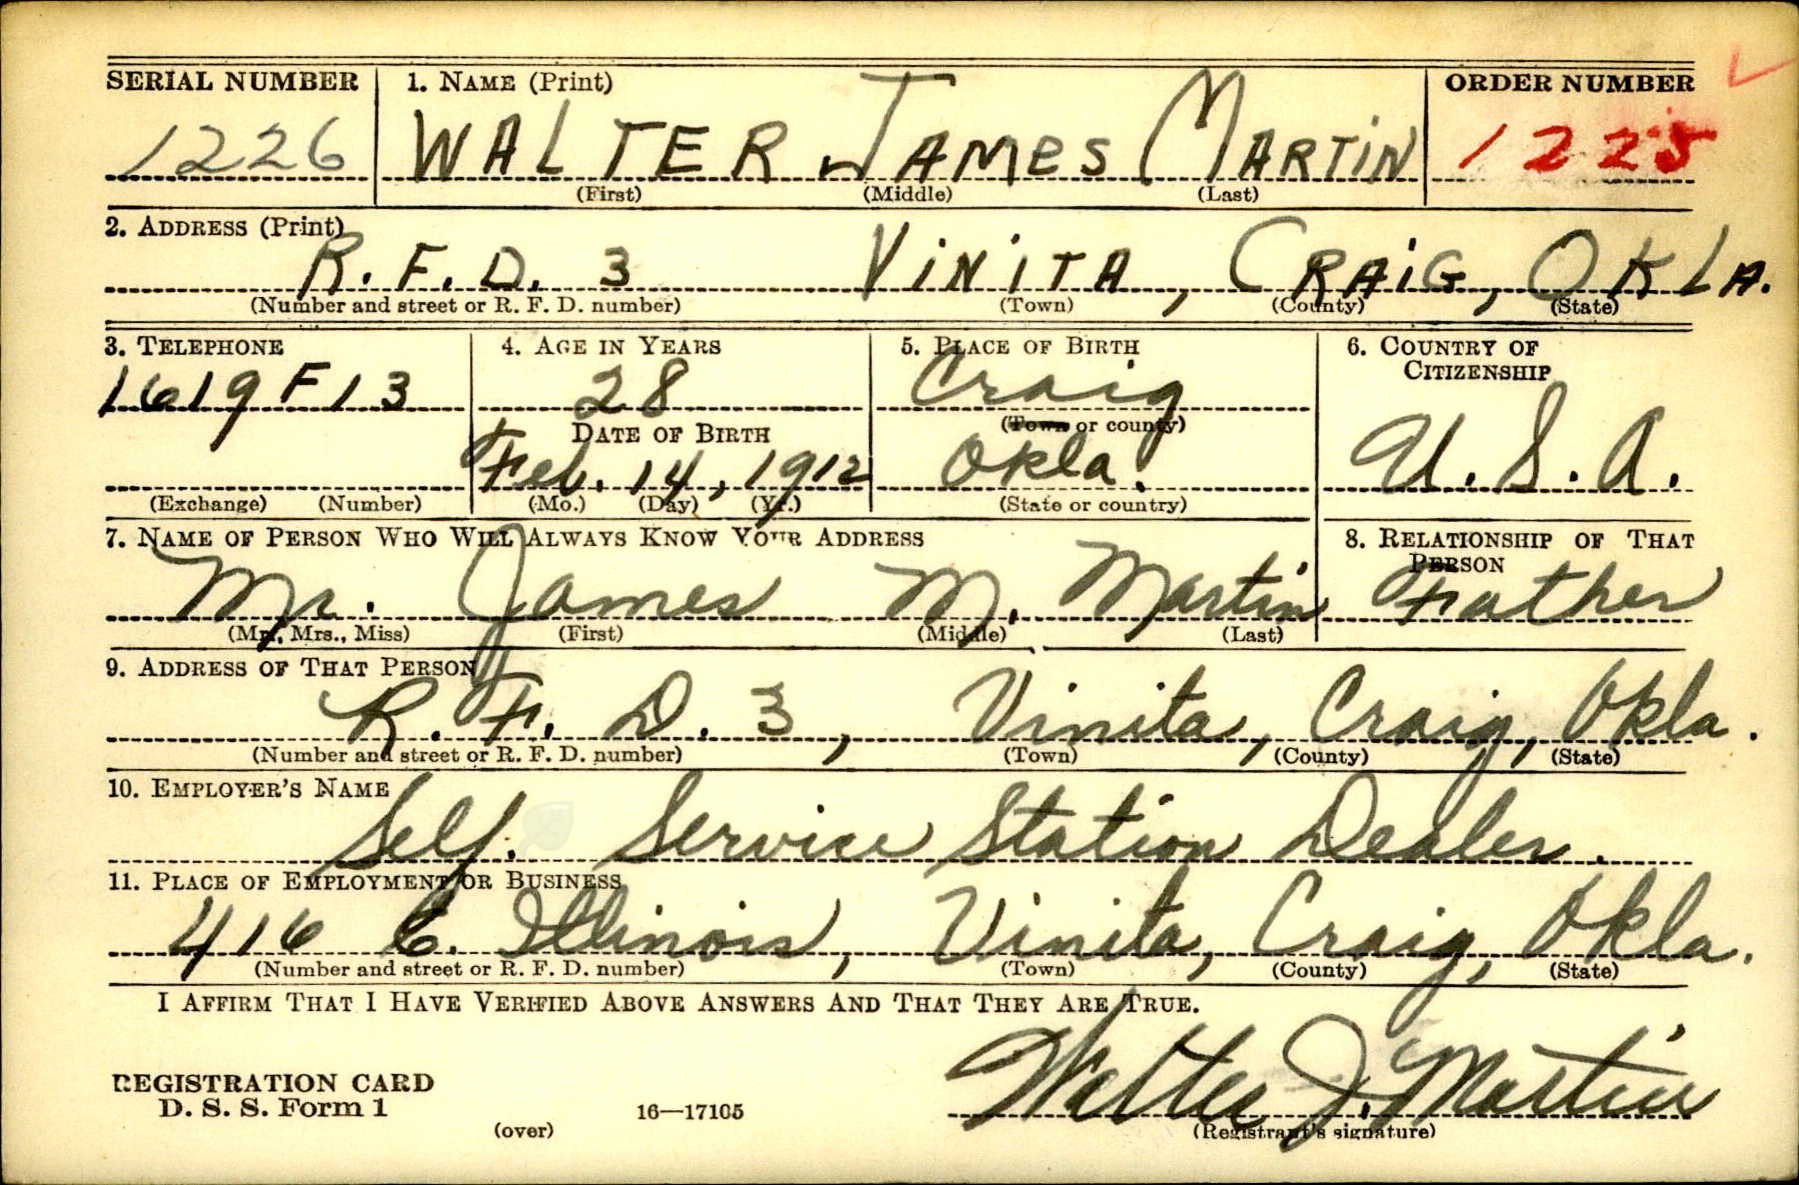 SERIAL NUMBER 1. NAME (Print) ORDER NUMBER
1226 WALTER JAMES MARTIN 1225
(First) (Middle) (Last)
2. ADDRESS (Print)
R. F. D. 3 VINITA, CRAIG, OKLA.
(Number and street or R. F. D. number) (Town) (County) (State)
3. TELEPHONE 4. AGE IN YEARS 5. PLACE OF BIRTH 6. COUNTRY OF
CITIZENSHIP
1619 F 13 28 Craig
(Town or county)
DATE OF BIRTH
Feb. 14, 1912 Okla. U. S. A.
(Exchange) (Number) (Mo.) (Day) (Yr.) (State or country)
7. NAME OF PERSON WHO WILL ALWAYS KNOW YOUR ADDRESS 8. RELATIONSHIP OF THAT
PERSON
Mr. James M. Martin Father
(Mr., Mrs., Miss) (First) (Middle) (Last)
9. ADDRESS OF THAT PERSON
R. F. D. 3, Vinita, Craig, Okla.
(Number and street or R. F. D. number) (Town) (County) (State)
10. EMPLOYER'S NAME
Self. Service Station Dealer.
11. PLACE OF EMPLOYMENT OR BUSINESS
416 E. Illinois, Vinita, Craig, Okla.
(Number and street or R. F. D. number) (Town) (County) (State)
I AFFIRM THAT I HAVE VERIFIED ABOVE ANSWERS AND THAT THEY ARE TRUE.
Walter J. Martin
REGISTRATION CARD
D. S. S. Form 1 16—17105
(over) (Registrant's signature)